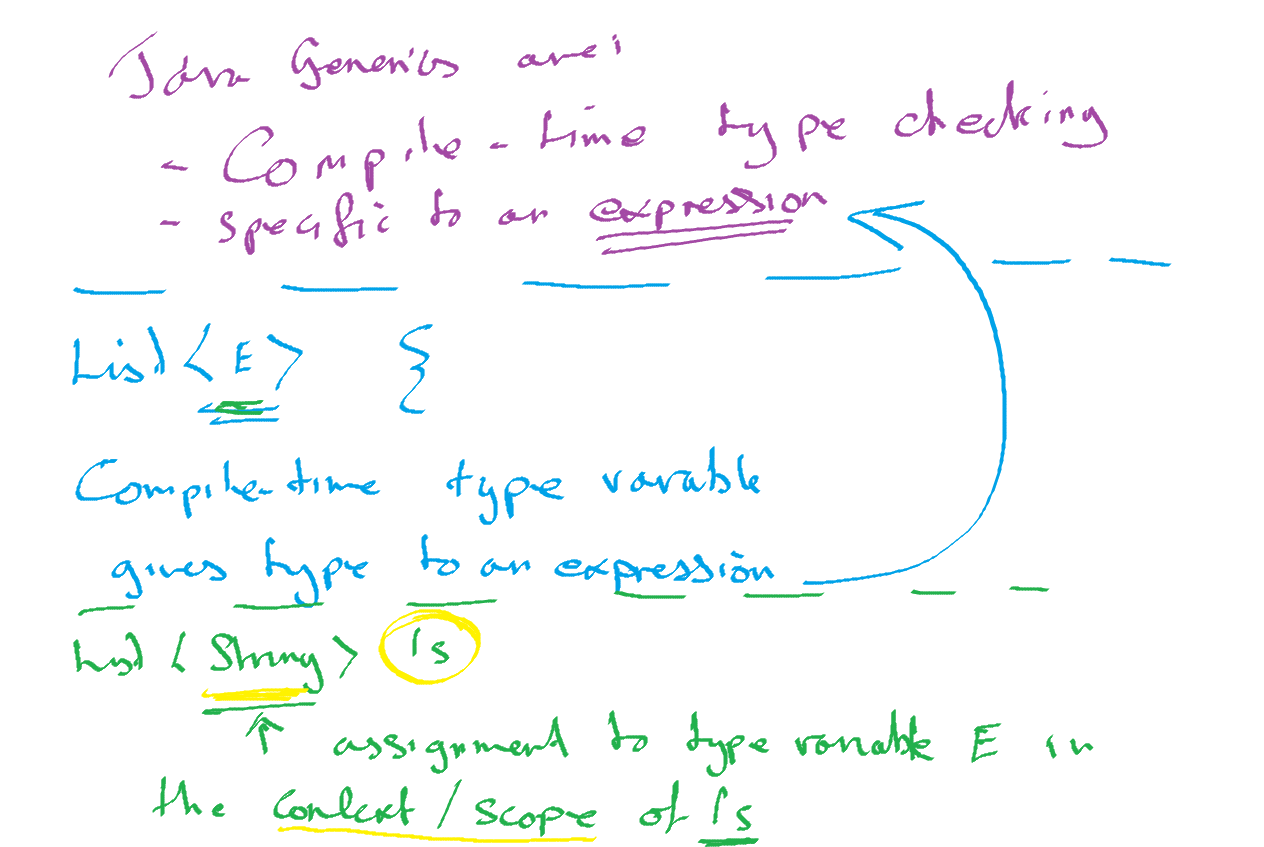 Java Generics are:
- Compile-time type checking
- specific to an expression
List <E> {
Compile-time type varable
gives type to an expression
List <String> ls
↑ assignment to type variable E in
the context/scope of ls